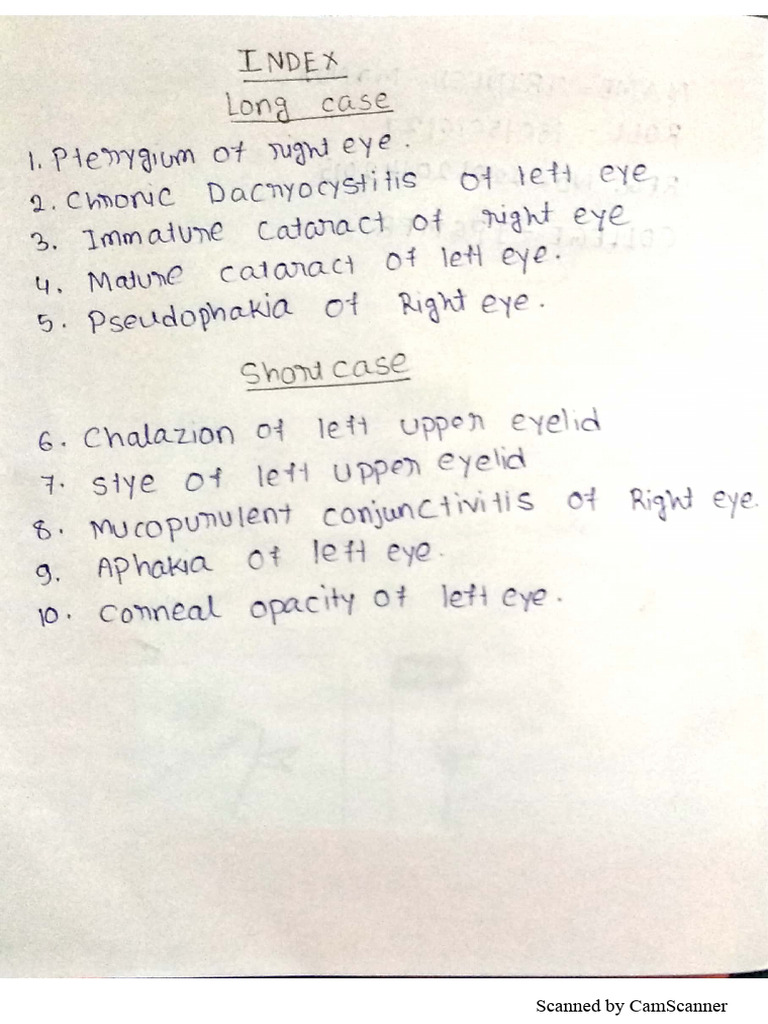 INDEX
Long case
1. Pterygium of right eye.
2. Chronic Dacryocystitis of left eye
3. Immature Cataract of right eye
4. Mature cataract of left eye.
5. Pseudophakia of Right eye.
Short case
6. Chalazion of left upper eyelid
7. Stye of left upper eyelid
8. Mucopurulent conjunctivitis of Right eye.
9. Aphakia of left eye.
10. Corneal opacity of left eye.
Scanned by CamScanner